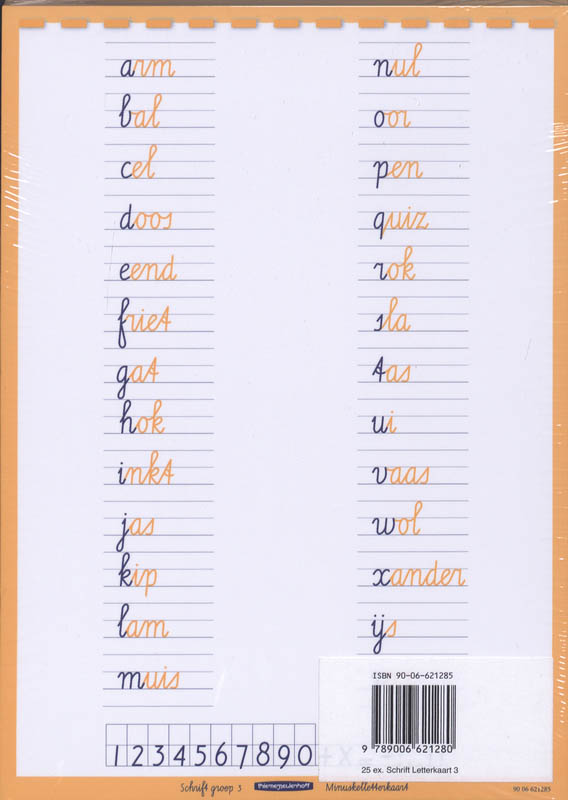 arm
bal
cel
doos
eend
friet
gat
hok
inkt
jas
kip
lam
muis
nul
oor
pen
quiz
rok
sla
tas
ui
vaas
wol
xander
ijs
1234567890
ISBN 90-06-621285
9 789006 621280
25 ex. Schrift Letterkaart 3
Schrift groep 3 ThiemeMeulenhoff Minuskelletterkaart 90 06 621285